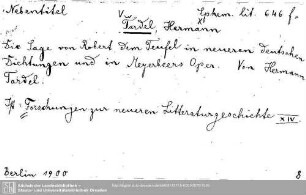 Nebentitel V Lg. hem. lit. 646 f.
Tardel, Hermann XI
Die Sage von Robert dem Teufel in neueren deutschen
Dichtungen und in Meyerbeers Oper. Von Hermann
Tardel.
= Forschungen zur neueren Litteraturgeschichte XIV
Berlin 1900 8
Sächsische Landesbibliothek -
Staats- und Universitätsbibliothek Dresden